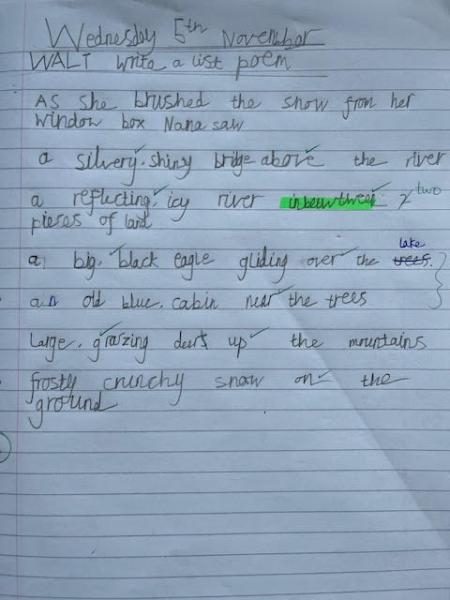 Wednesday 5th November
WALT write a list poem
As she brushed the snow from her
window box Nana saw
a silvery, shiny bridge above the river
a reflecting, icy river inbeewtweey 2 two
pieces of land
a big, black eagle gliding over the trees. lake
an old blue, cabin near the trees
large, grazing deers up the mountains
frosty crunchy snow on the
ground